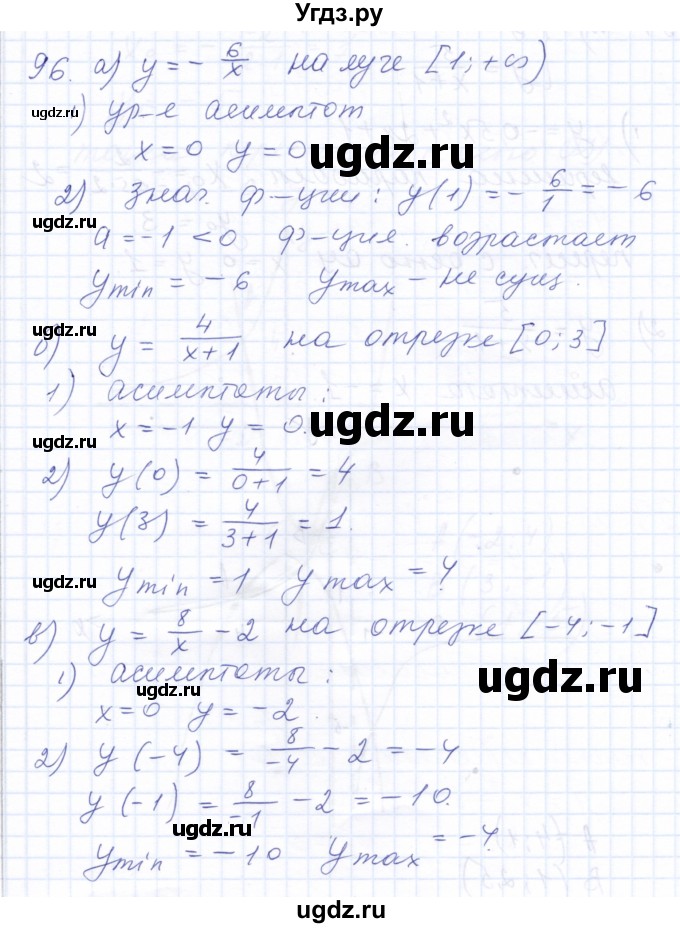 Угдз.ру
96. а) y = - 6/x на луче [1; +∞)
1) ур-я асимптот
x = 0 y = 0
ugdz.ru
ugdz.ru
2) Знач. ф-ции: y(1) = - 6/1 = - 6
ugdz.ru
a = -1 < 0 ф-ция возрастает
ymin = - 6 ymax - не сущ.
ugdz.ru
б) y = 4/(x+1) на отрезке [0; 3]
1) асимптоты:
x = -1 y = 0.
ugdz.ru
ugdz.ru
2) y(0) = 4/(0+1) = 4
y(3) = 4/(3+1) = 1.
ymin = 1 ymax = 4.
ugdz.ru
в) y = 8/x - 2 на отрезке [-4; -1]
1) асимптоты:
ugdz.ru
ugdz.ru
x = 0 y = -2.
2) y(-4) = 8/-4 - 2 = -4
y(-1) = 8/-1 - 2 = -10.
ugdz.ru
ymin = -10 ymax = -4.
ugdz.ru